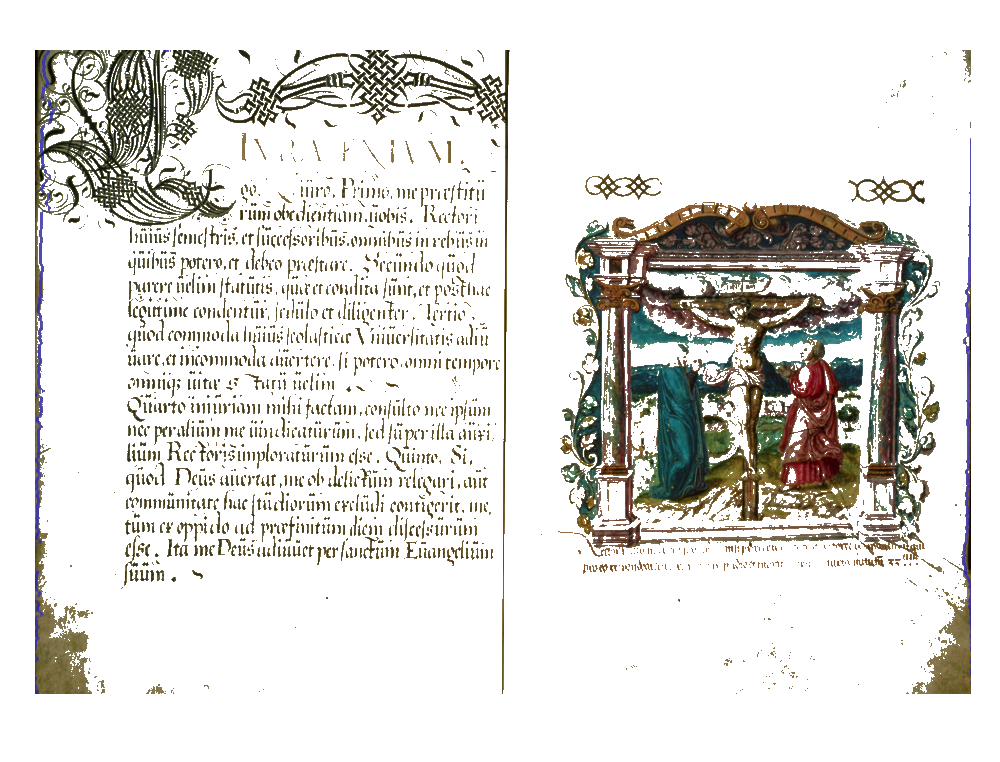 IVRAMENTVM.
Ego. Iuro. Primo, me præstitu
rum obedientiam, uobis. Rectori
huius semestris, et successoribus, omnibus in rebus in
quibus potero, et debeo præstare. Secundo quod
parere uelim statutis, quæ et condita sunt, et posthac
legitime condentur, sedulo et diligenter. Tertio.
quod commoda huius scolasticæ Vniuersitatis adiu
uare, et incommoda auertere, si potero, omni tempore
omniq; uitæ Statu uelim.
Quarto iniuriam mihi factam, consulto nec ipsum
nec per alium me uindicaturum, sed super illa auxi,
lium Rectoris imploraturum esse. Quinto. Si,
quod Deus auertat, me ob delictum relegari, aut
communitate hac studiorum excludi contigerit, me,
tum ex oppido ad præfinitum diem discessurum
esse. Ita me Deus adiuuet per sanctum Euangelium
suum.